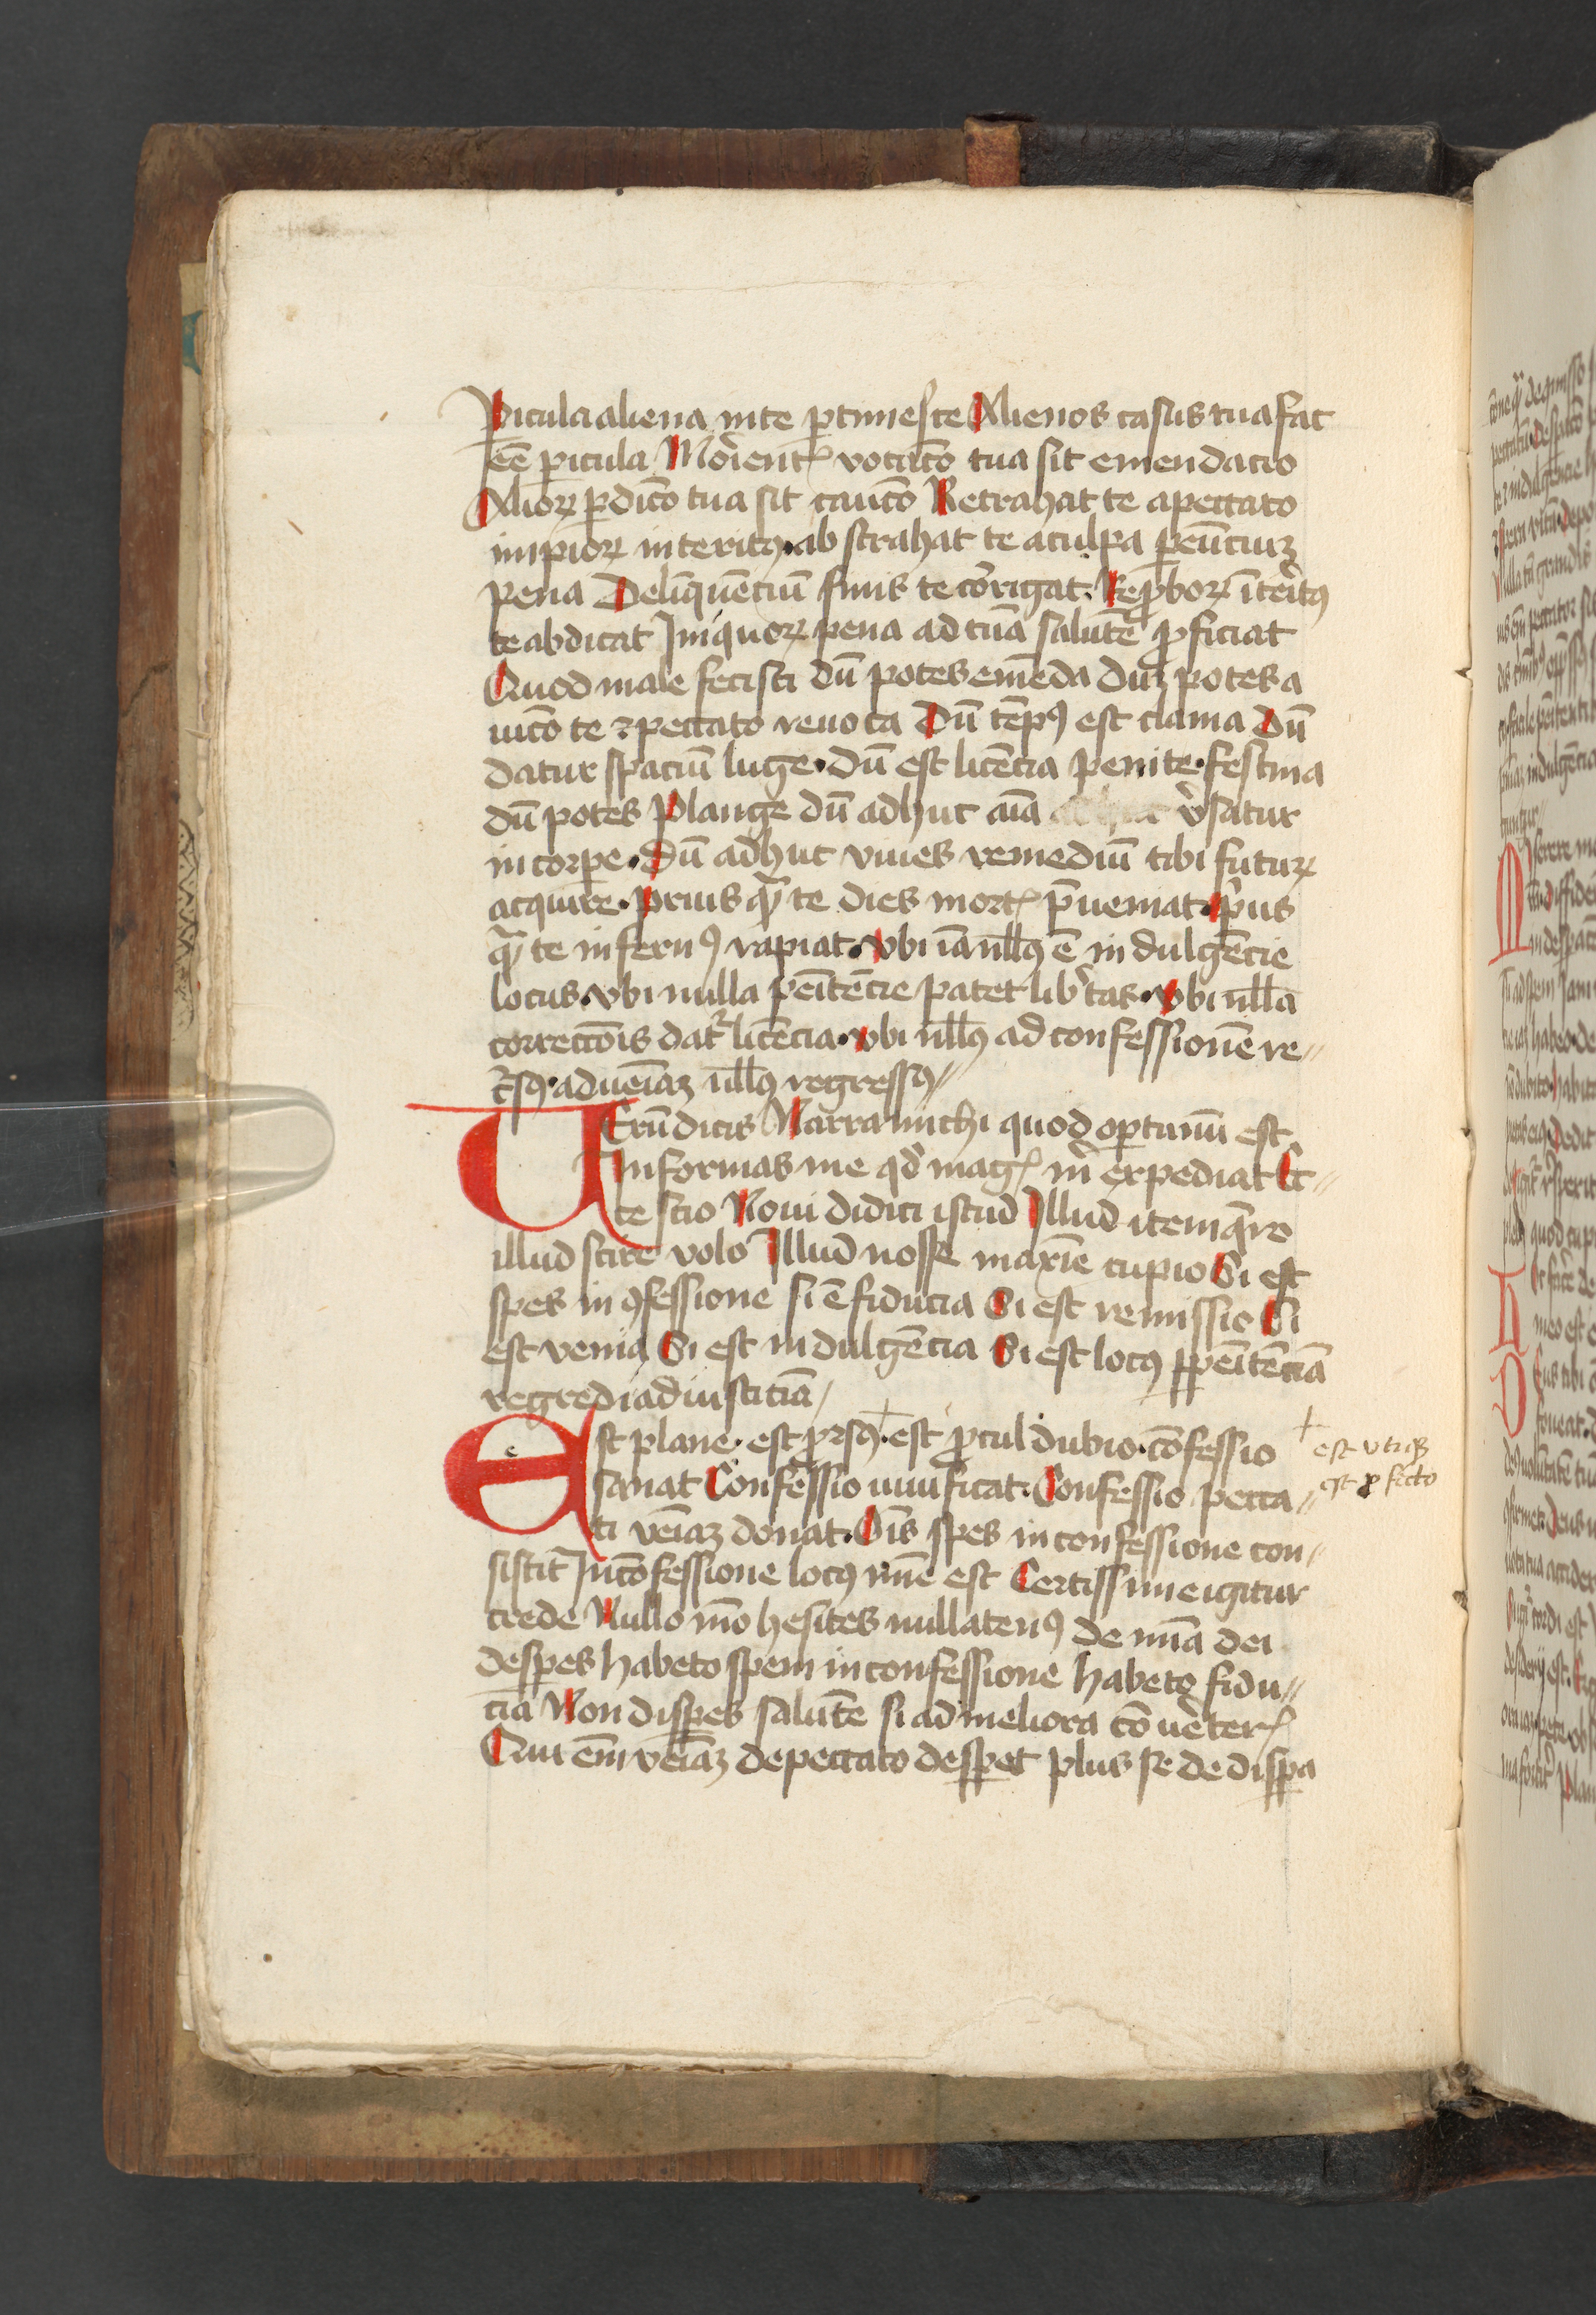 Picula aliena in te ptimesce Alienos casus tua fac
eē picula Morient᷒ vocac̄o tua sit emendacio
Alioꝝ pdic̄o tua sit cauc̄o Retrahat te a peccato
impioꝝ interitꝰ · abstrahat te a culpa peūciuꝫ
pena Delīquēciū finis te corrigat · Reꝓboꝝ īteritꝰ
te abdicat Iniquoꝝ pena ad tuā salutē ꝓficiat
Quod male fecisti dū potes emēda duꝫ potes a
uic̄o te ⁊ peccato reuoca Dū tēpꝰ est clama Dū
datur spaciū luge · dū est licēcia penite · festina
dū potes Plange dū adhuc aīa v̓satur
in corpe · Dū adhuc viues remediū tibi futuꝝ
acquire · prius qᷓ te dies mort᷒ p̄ueniat · p̓us
qᷓ te infernꝰ rapiat · vbi iā nll̄ꝰ ē indulgēcie
locus · vbi nulla peītēcie patet lib̓tas · vbi nll̄a
correcc̄ois dat᷑ licēcia · vbi nll̄ꝰ ad confessionē re〃
c̓sꝰ · ad veīaꝫ nll̄ꝰ regressꝰ〃
VErū dicis Narra michi quod optimū est
Informas me qd̓ mag᷒ m̓ expediat Cer〃
te scio Noui didici istud Illud item q̄ro
illud scire volo Illud nosse maxīe cupio Si est
spes in ꝯfessione si ē fiducia Si est remissio Si
est venia Si est indulgēcia Si est locꝰ p peītēciā
regredi ad iusticiā /
ESt plane · est ꝓrsꝰ · + est ꝓcul dubio · cōfessio
sanat Confessio iustificat · Confessio pecca〃
ti veīaꝫ donat · Oīs spes in confessione con/
sistit In cōfessione locꝰ mīe est Certissime igitur
crede Nullo mō hesites nullatenꝰ de mīa dei
despes habeto spem in confessione habeto fidu〃
ciā Non dispes salutē si ad meliora cōuerter᷒
Qui em̄ veīaꝫ de peccato despet plus se de dispa
+ est vtiqꝫ
est ꝓfecto